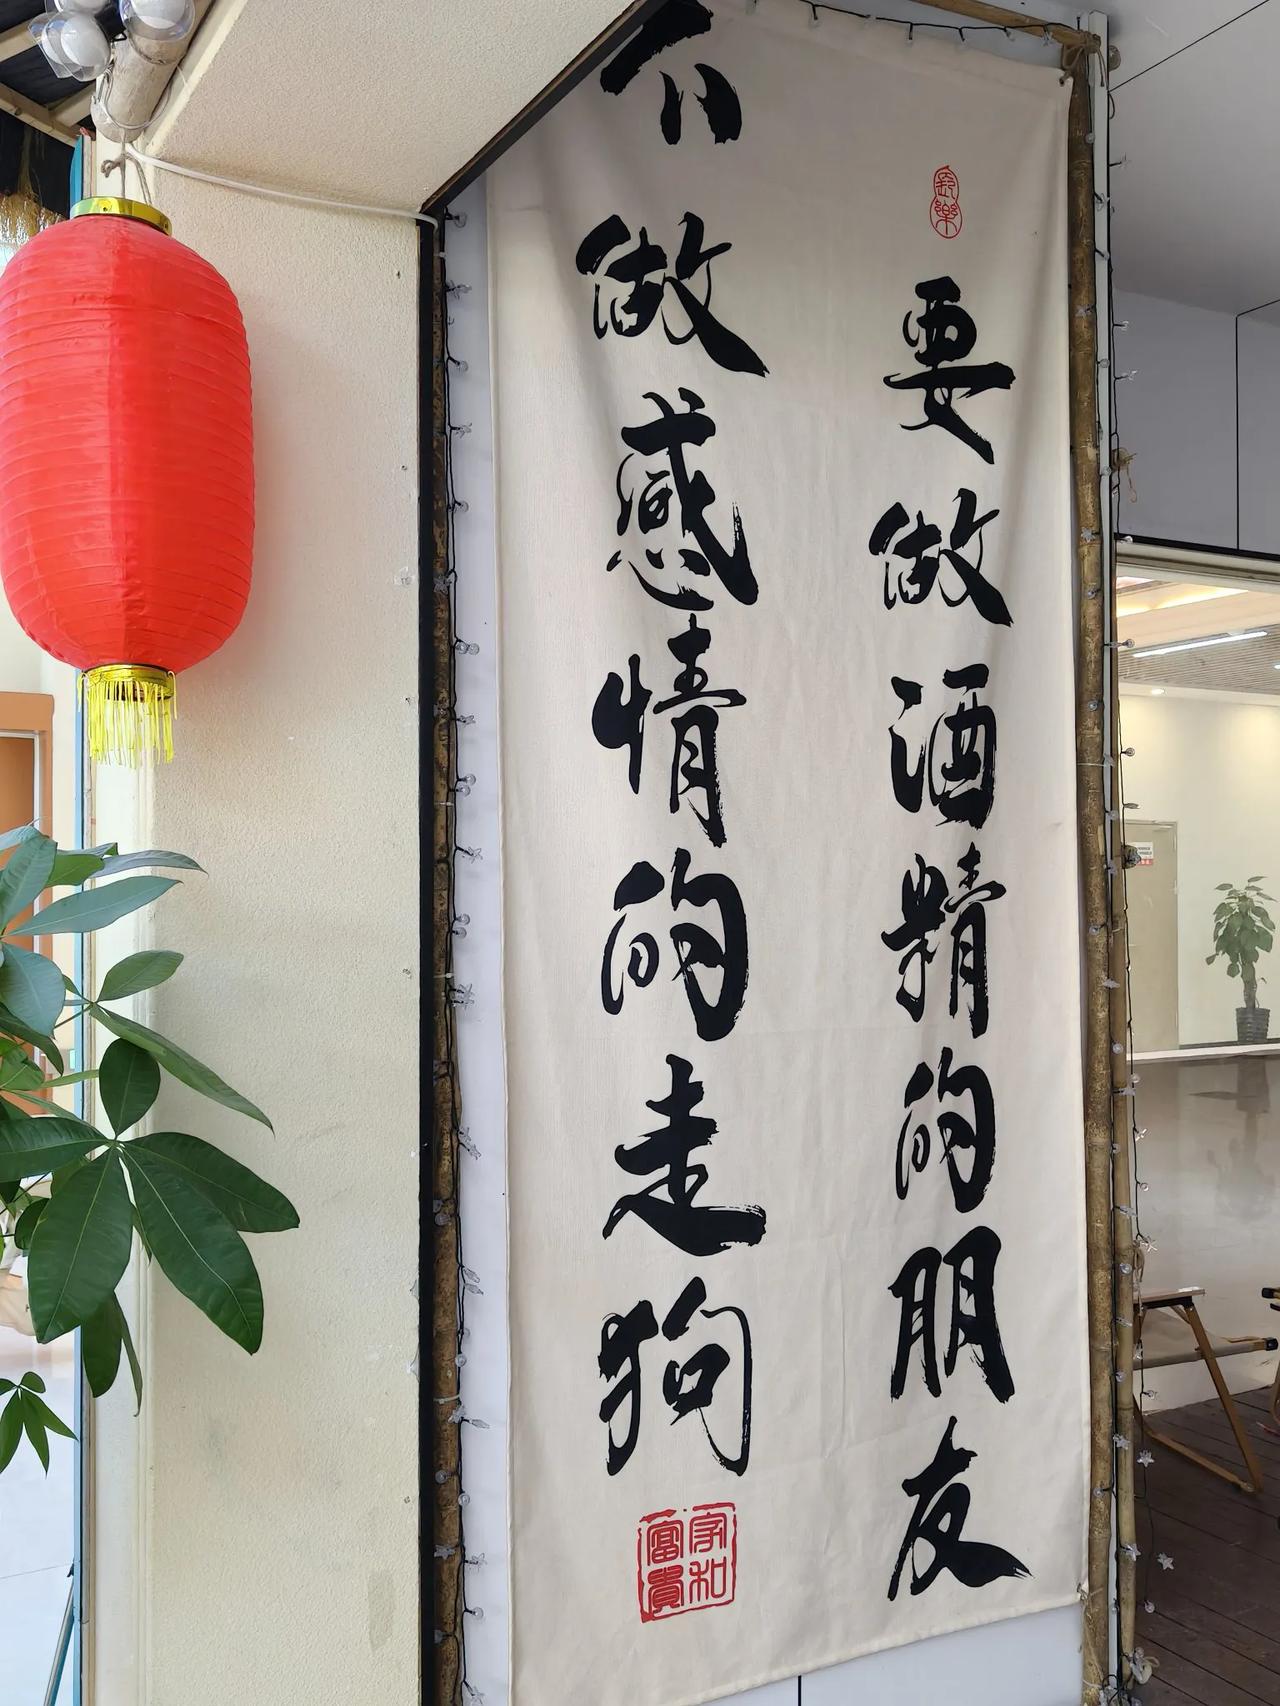 要做酒精的朋友
不做感情的走狗
家和
富貴